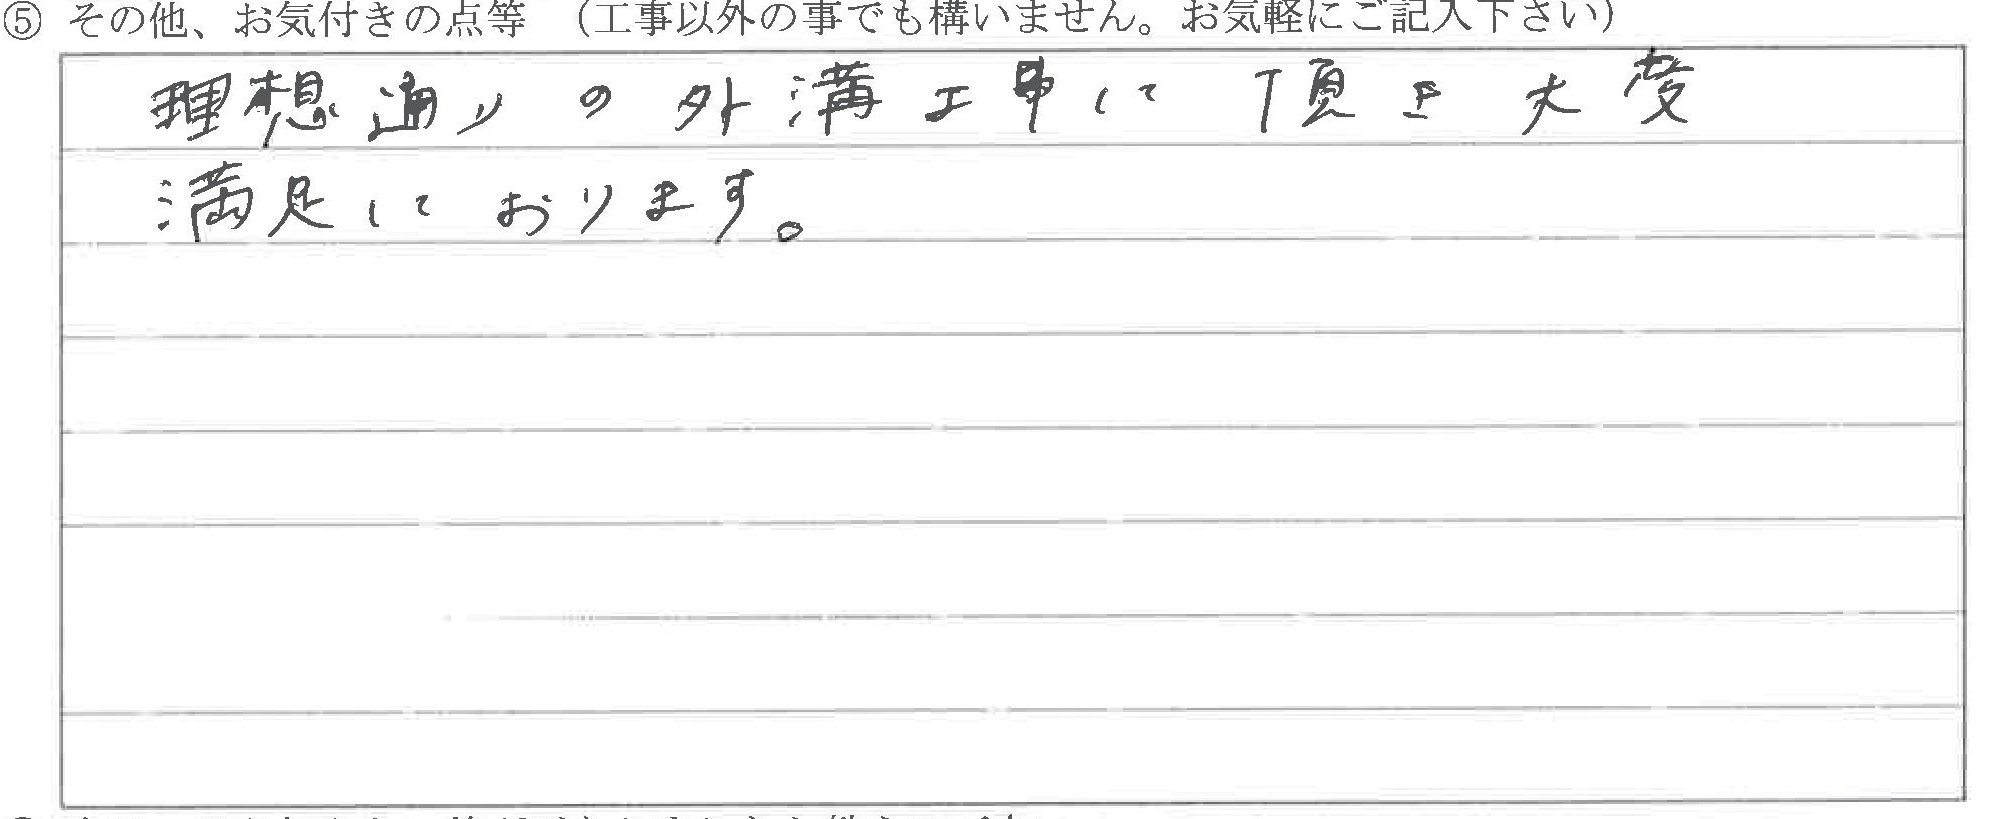 ⑤ その他、お気付きの点等　（工事以外の事でも構いません。お気軽にご記入下さい）
理想通りの外溝工事に頂き大変
満足しております。